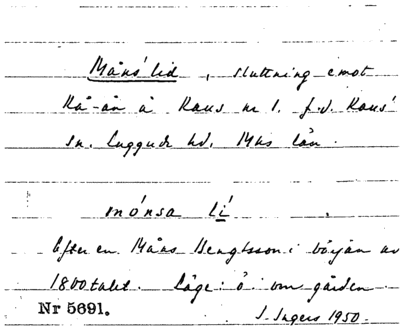 Måns' lid, sluttning emot
Rå-ån å Raus nr 1, f.d. Raus'
sn. Luggude hd. Mhs län.
mónsa lí.
Efter en Måns Bengtsson i början av
1800talet. Läge: ö. om gården.
Nr 5691.
I. Ingers 1950.